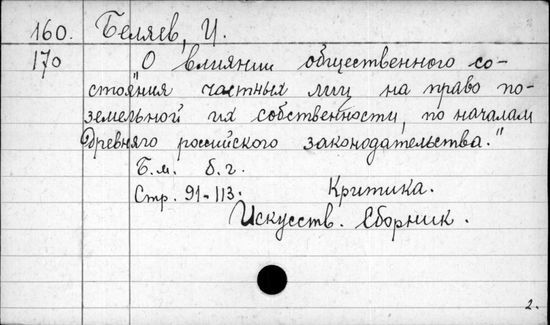 160. Беляев, И.
170 "О влиянии общественного со-
стояния частных лиц на право по-
земельной их собственности, по началам
древняго российского законодательства."
Б.м. б.г.
Стр. 91-113. Критика.
Искусств. Сборник.
2.